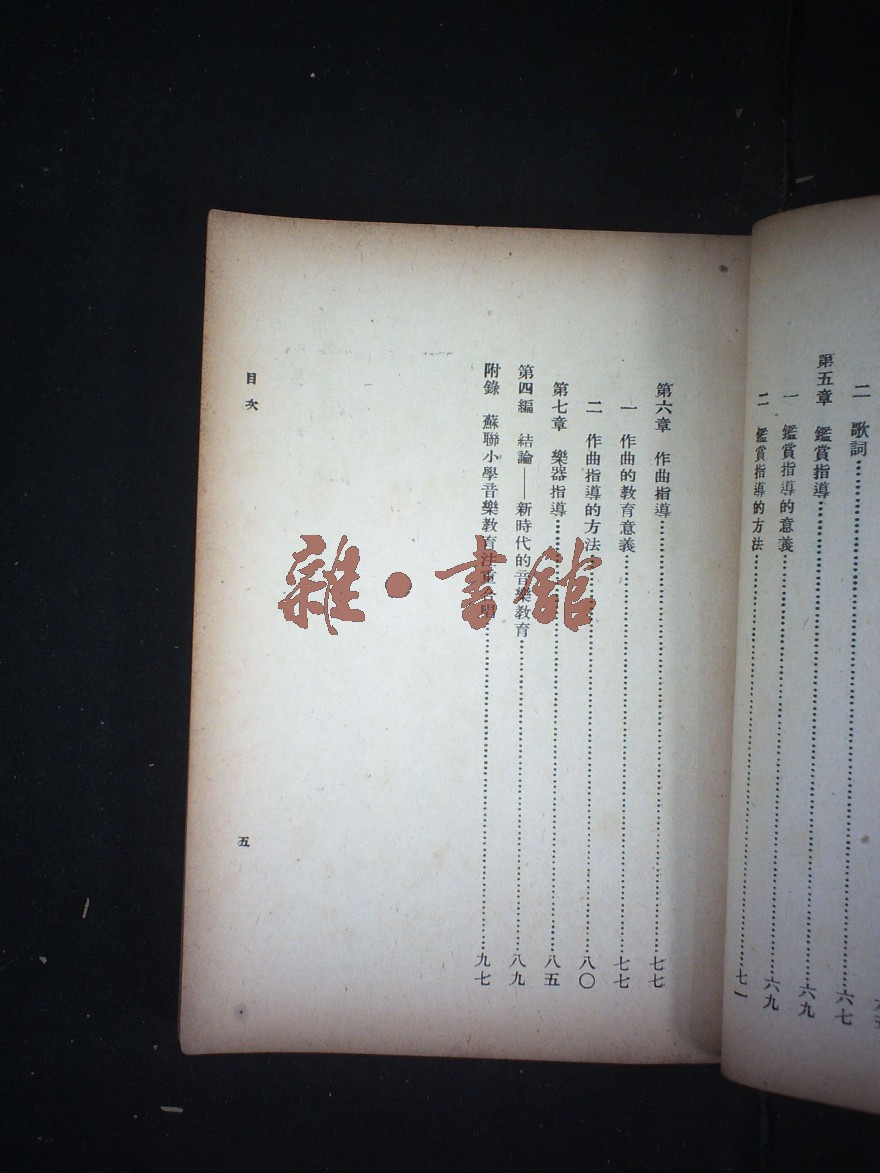 二 歌詞……六七
第五章 鑑賞指導……六九
一 鑑賞指導的意義……六九
二 鑑賞指導的方法……七一
第六章 作曲指導……七七
一 作曲的教育意義……七七
二 作曲指導的方法……八〇
第七章 樂器指導……八五
第四編 結論——新時代的音樂教育……八九
附錄 蘇聯小學音樂教育注重合唱……九七
目次
五
雜·書館